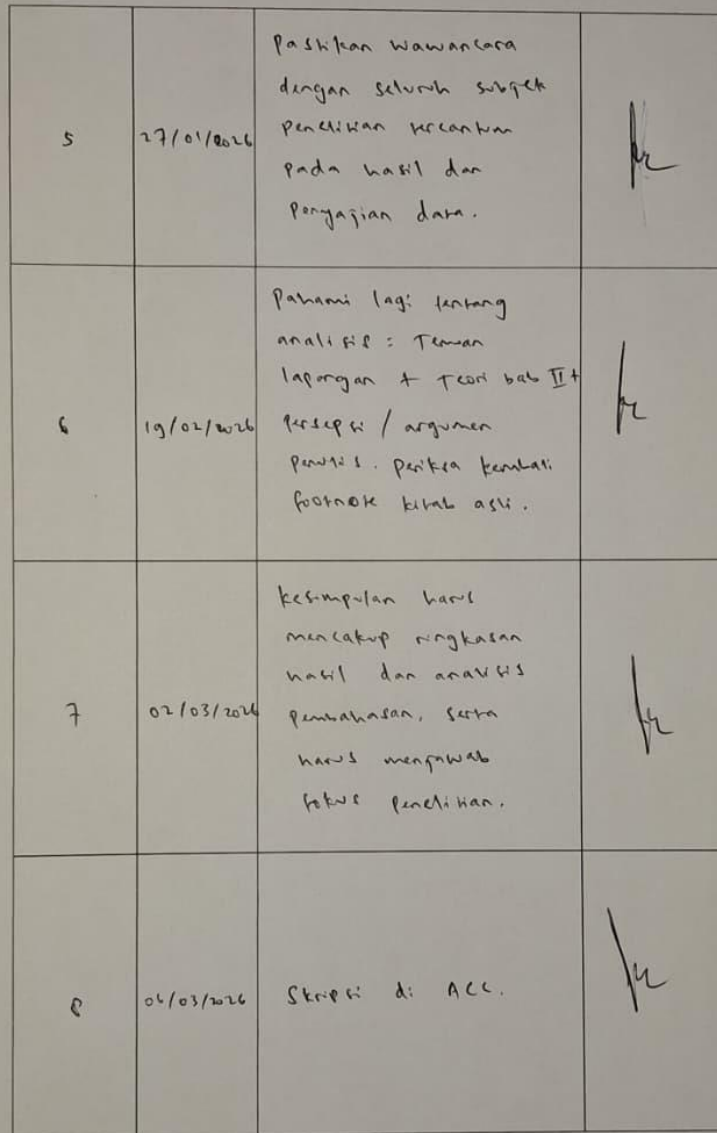 5
27/01/2026
Pastikan wawancara
dengan seluruh subjek
penelitian tercantum
pada hasil dan
penyajian data.
6
19/02/2026
Pahami lagi tentang
analisis : Temuan
lapangan + Teori bab II +
persepsi / argumen
penulis. periksa kembali
footnote kitab asli.
7
02/03/2026
kesimpulan harus
mencakup ringkasan
hasil dan analisis
pembahasan, serta
harus menjawab
fokus penelitian.
8
06/03/2026
Skripsi di ACC.